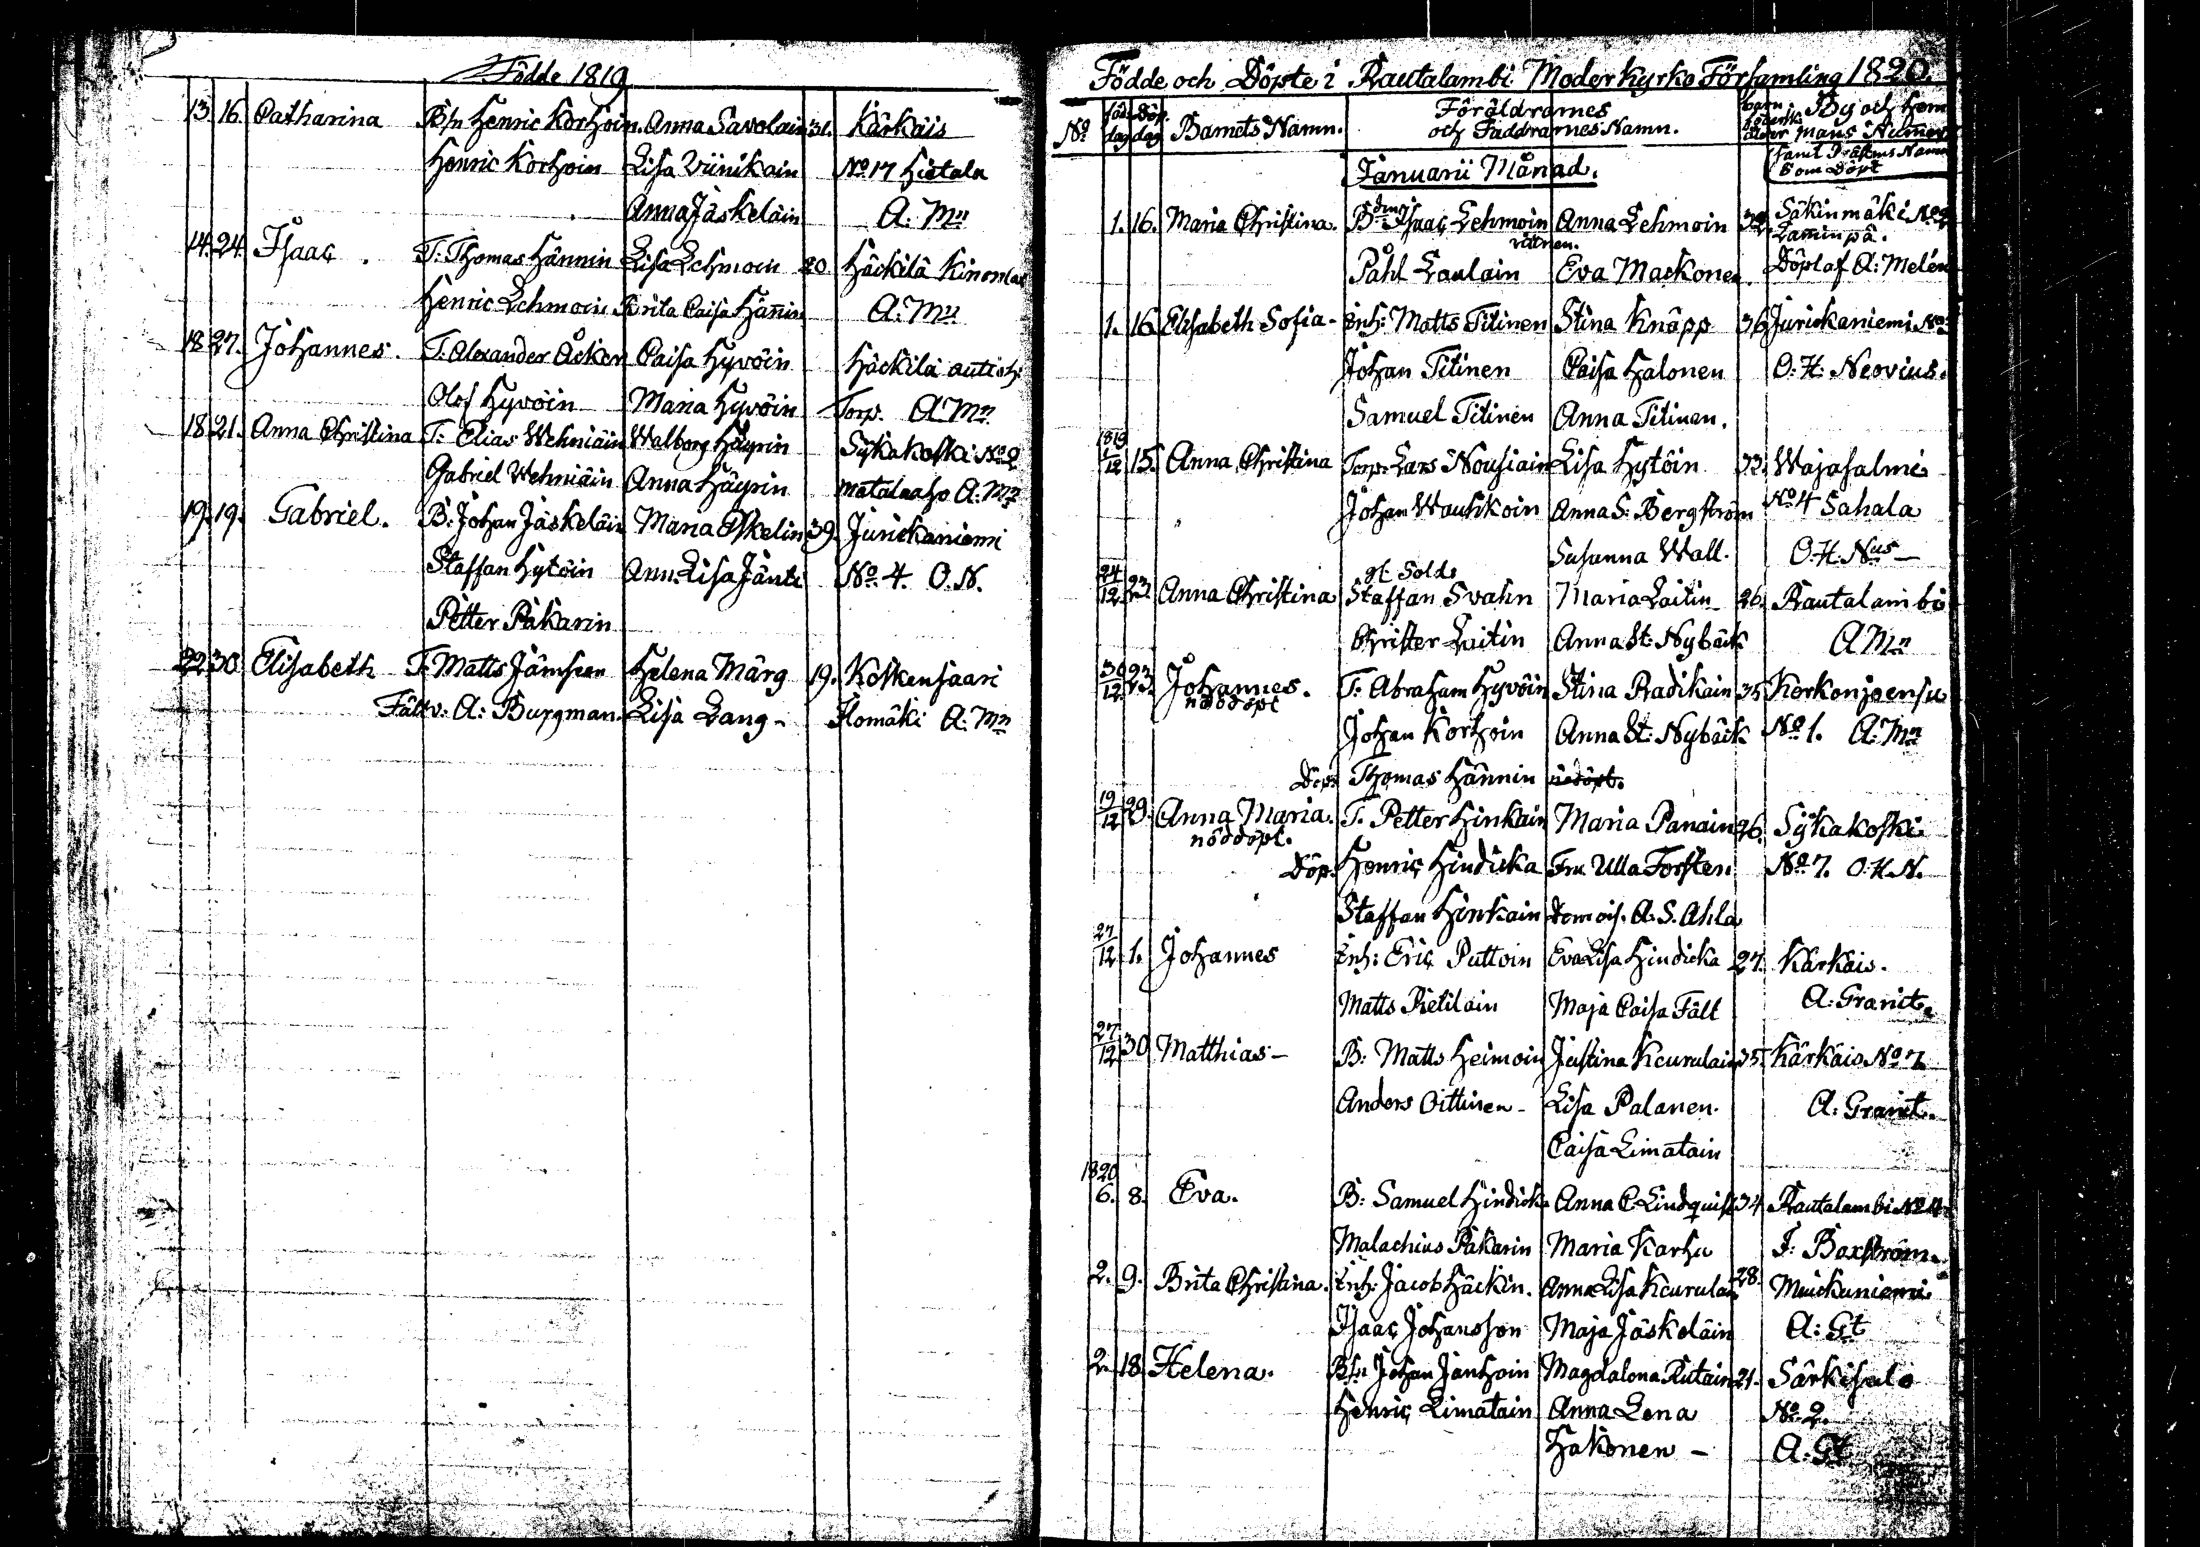 Födde 1819
13. 16. Catharina B/n Henric Korhoin. Anna Savolain 31. Kärkäis
Henric Korhoin Lisa Viinikain No 17 Hietala
Anna Jäskeläin A: Mn
14. 24. Isaac. T: Thomas Hännin Lisa Lehmoin 20 Häckilä
Henric Lehmoin Brita Caisa Hänin A: Mn
18 27. Johannes. T. Alexander Åcker Caisa Hyvöin Häckilä
Olof Hyvöin Maria Hyvöin Torp. A Mn
18 21. Anna Christina T: Elias Wehniäin Walborg Häyrin Sykäkoski No 2
Gabriel Wehniäin Anna Häyrin matalaaho A: Mn
19. 19. Gabriel. B: Johan Jäskeläin Maria Eskelin 39. Jurickaniemi
Staffan Hytöin Ann. Lisa Jänti No 4. O. N.
Petter Pakarin
22 30. Elisabeth T. Matts Jämsen Helena Märg 19. Koskensaari
Fältv: A: Burgman. Lisa Lang - Ilomäki A: Mn
Födde och Döpte i Rautalambi Moderkyrko Församling 1820.
No föd dag Döp. dag Barnets Namn. Föräldrarnes och Faddrarnes Namn. By och hemmans Nummer
samt Prästens Namn som Döpt
Januarii Månad.
1. 16. Maria Christina. B: Isaac Lehmoin Anna Lehmoin 32. Säkinmäki No 2
Påhl Laulain Eva Mackonen. Döpt af A: Melén
1. 16. Elisabeth Sofia - Inh: Matts Titinen Stina Knäpp 36 Jurickaniemi No
Johan Titinen Caisa Halonen O. H. Neovius.
Samuel Titinen Anna Titinen.
1819
1/12 15. Anna Christina Torp: Lars Nousiain Lisa Hytöin 33. Wajasalmi
Johan Wauhkoin Anna S: Bergström No 4 Sahala
Susanna Wall. O. H. Nus -
24/12 23 Anna Christina Sold. Staffan Svahn Maria Laitin 26. Rautalambi
Christer Laitin Anna St: Nybäck A Mn
30/12 23. Johannes. T. Abraham Hyvöin Stina Radikain 35 Korkonjoensu
nöddöpt Johan Korhoin Anna St: Nybäck No 1. A: Mn
Döp: Thomas Hännin
19/12 29. Anna Maria. T. Petter Hinkain Maria Panain 26. Sykäkoski
nöddöpt.
Döp. Henric Hindicka Fru Ulla Forsten No 7. O. H. N.
Staffan Hinkain Demois. A. S. Ahla
27/12 1. Johannes Inh: Eric Puttoin Eva Lisa Hindicka 27. Kärkäis.
Matts Pietilain Maja Caisa Fält A: Granit.
27/12 30 Matthias - B: Matts Heimoin Justina Keurulain 35. Kärkäis No 7
Anders Oittinen - Lisa Palanen. A: Granit.
Caisa Limatain
1820
6. 8. Eva. B: Samuel Hindick Anna C. Lindquist 34 Rautalambi No 4
Malachius Pakarin Maria Karhu J: Baxström.
2. 9. Brita Christina. Inh: Jacob Häckin. Anna Lisa Keurulain 28. Muickuniemi
Isaac Johansson Maja Jäskeläin A: Gt
2. 18 Helena. B/n Johan Janhoin Magdalena Rutain 21. Särkisalo
Henric Limatain Anna Lena No 2.
Hakonen - A: Gt